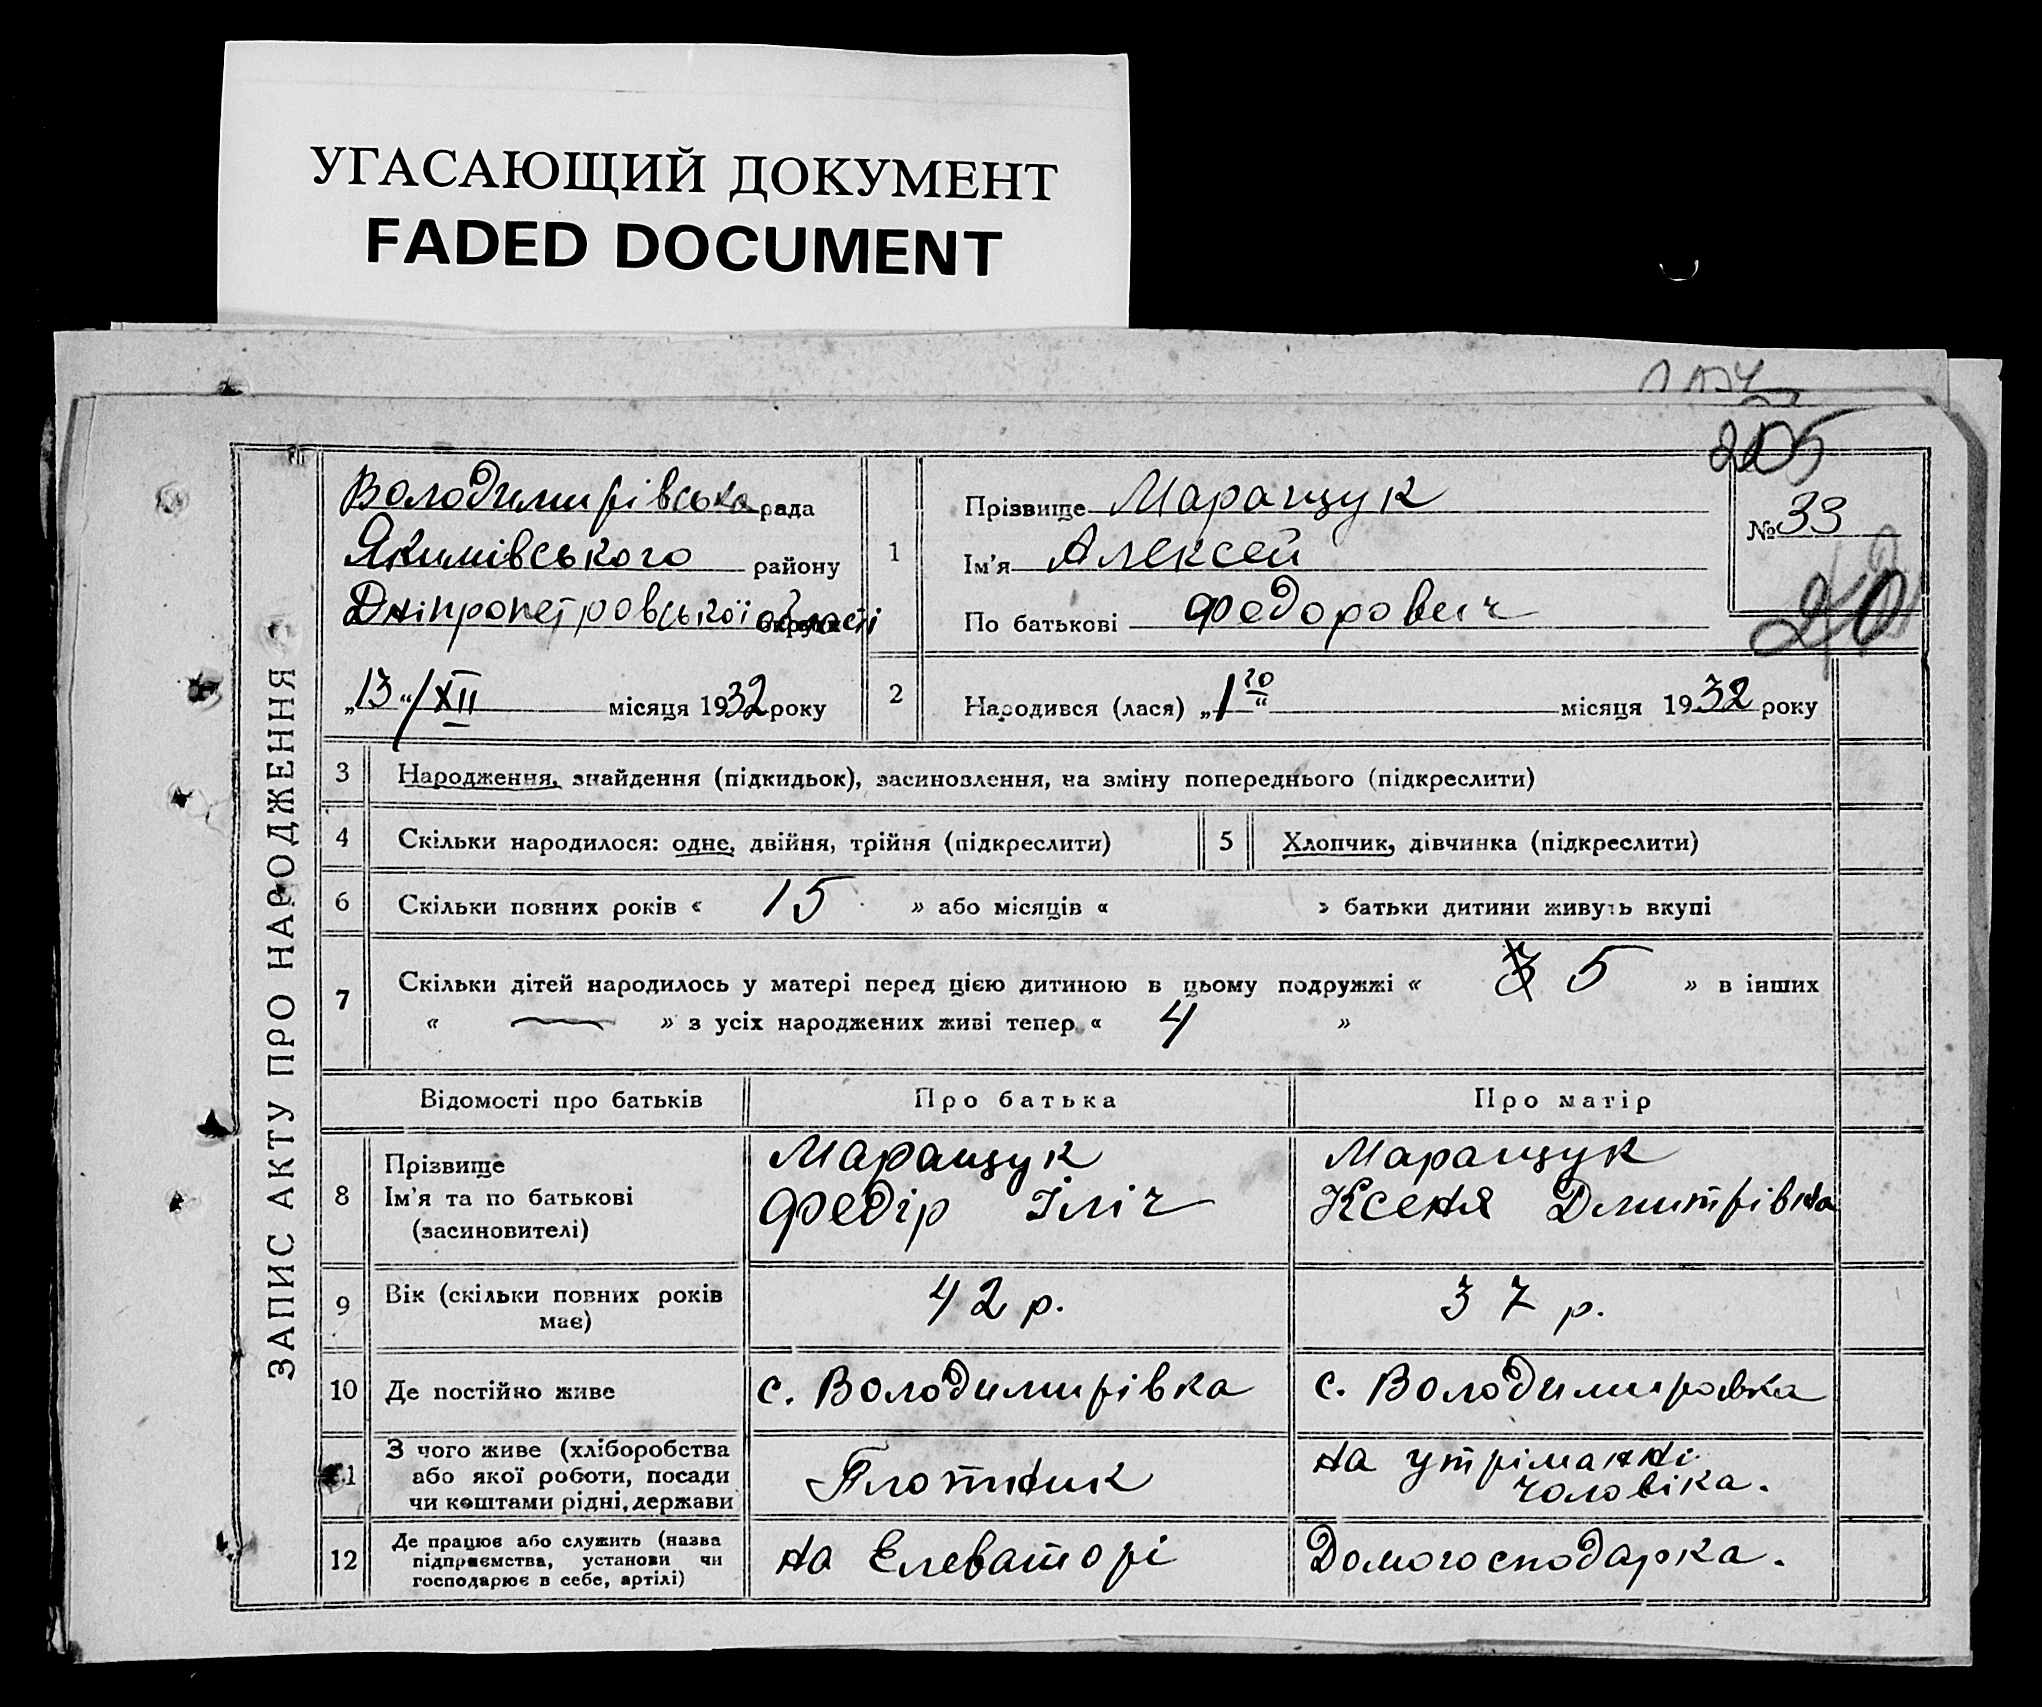 УГАСАЮЩИЙ ДОКУМЕНТ
FADED DOCUMENT
205
ЗАПИС АКТУ ПРО НАРОДЖЕННЯ
Володимирівська рада
Якимівського району
Дніпропетровської області
„13“/XII місяця 1932 року
1
Прізвище Маращук
Ім'я Алексей
По батькові Федорович
№ 33
20
2 Народився (лася) „1го“ місяця 1932 року
3 Народження, знайдення (підкидьок), засиновлення, на зміну попереднього (підкреслити)
4 Скільки народилося: одне, двійня, трійня (підкреслити) 5 Хлопчик, дівчинка (підкреслити)
6 Скільки повних років « 15 » або місяців « » батьки дитини живуть вкупі
7 Скільки дітей народилось у матері перед цією дитиною в цьому подружжі « 5 » в інших
« — » з усіх народжених живі тепер « 4 »
Відомості про батьків Про батька Про матір
8 Прізвище
Ім'я та по батькові
(засиновителі)
Маращук
Федір Іліч
Маращук
Ксеня Дмитрівна
9 Вік (скільки повних років
має)
42 р. 37 р.
10 Де постійно живе с. Володимирівка с. Володимировка
11 З чого живе (хліборобства
або якої роботи, посади
чи коштами рідні, держави
Плотник
на утріманні
чоловіка.
12 Де працює або служить (назва
підприємства, установи чи
господарює в себе, артілі)
на Елеваторі Домогосподарка.